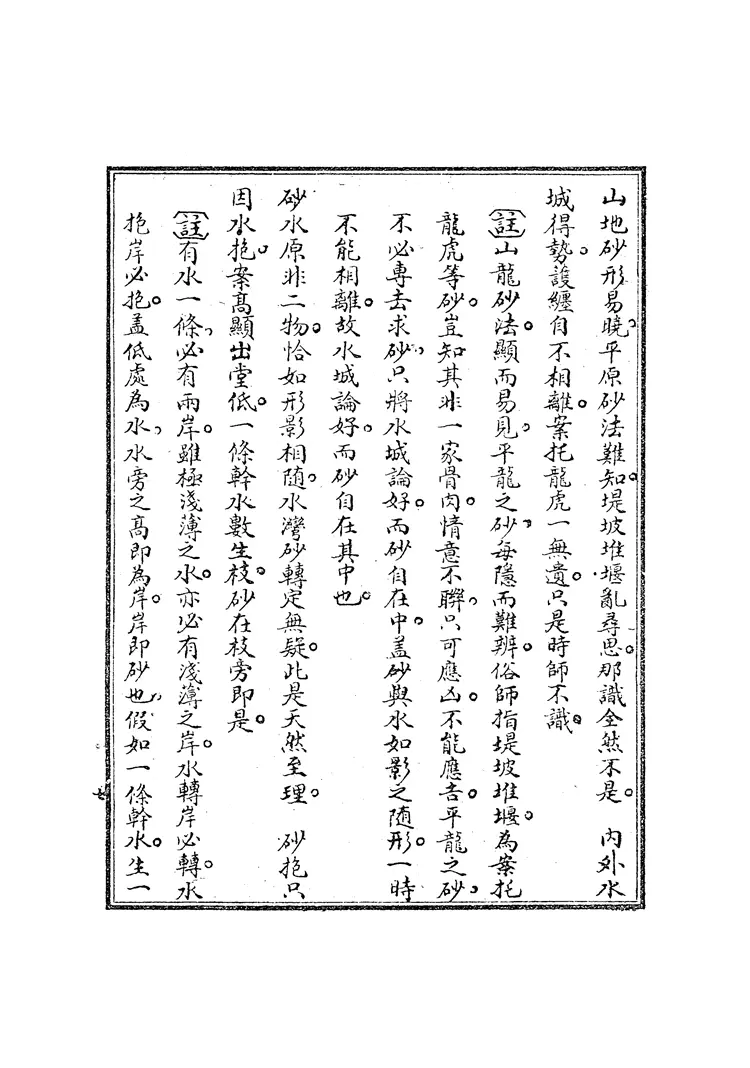 山地砂形易曉平原砂法難知堤坡堆堰亂尋思那識全然不是　內外水
城得勢護纏自不相離案托龍虎一無遺只是時師不識
〔註〕山龍砂法顯而易見平龍之砂每隱而難辨俗師指堤坡堆堰為案托
龍虎等砂豈知其非一家骨肉情意不聯只可應凶不能應吉平龍之砂
不必專去求砂只將水城論好而砂自在中蓋砂與水如影之隨形一時
不能相離故水城論好而砂自在其中也
砂水原非二物恰如形影相隨水灣砂轉定無疑此是天然至理　砂抱只
因水抱案高顯出堂低一條幹水數生枝砂在枝旁即是
〔註〕有水一條必有兩岸雖極淺薄之水亦必有淺薄之岸水轉岸必轉水
抱岸必抱蓋低處為水水旁之高即為岸岸即砂也假如一條幹水生一